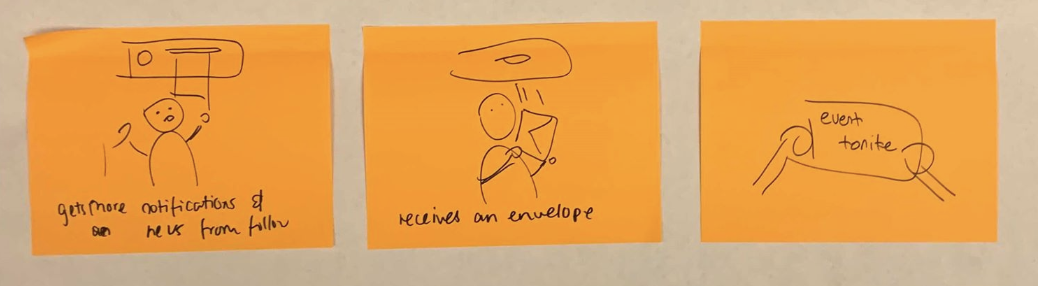 gets more notifications &
news from follow
receives an envelope
event
tonite